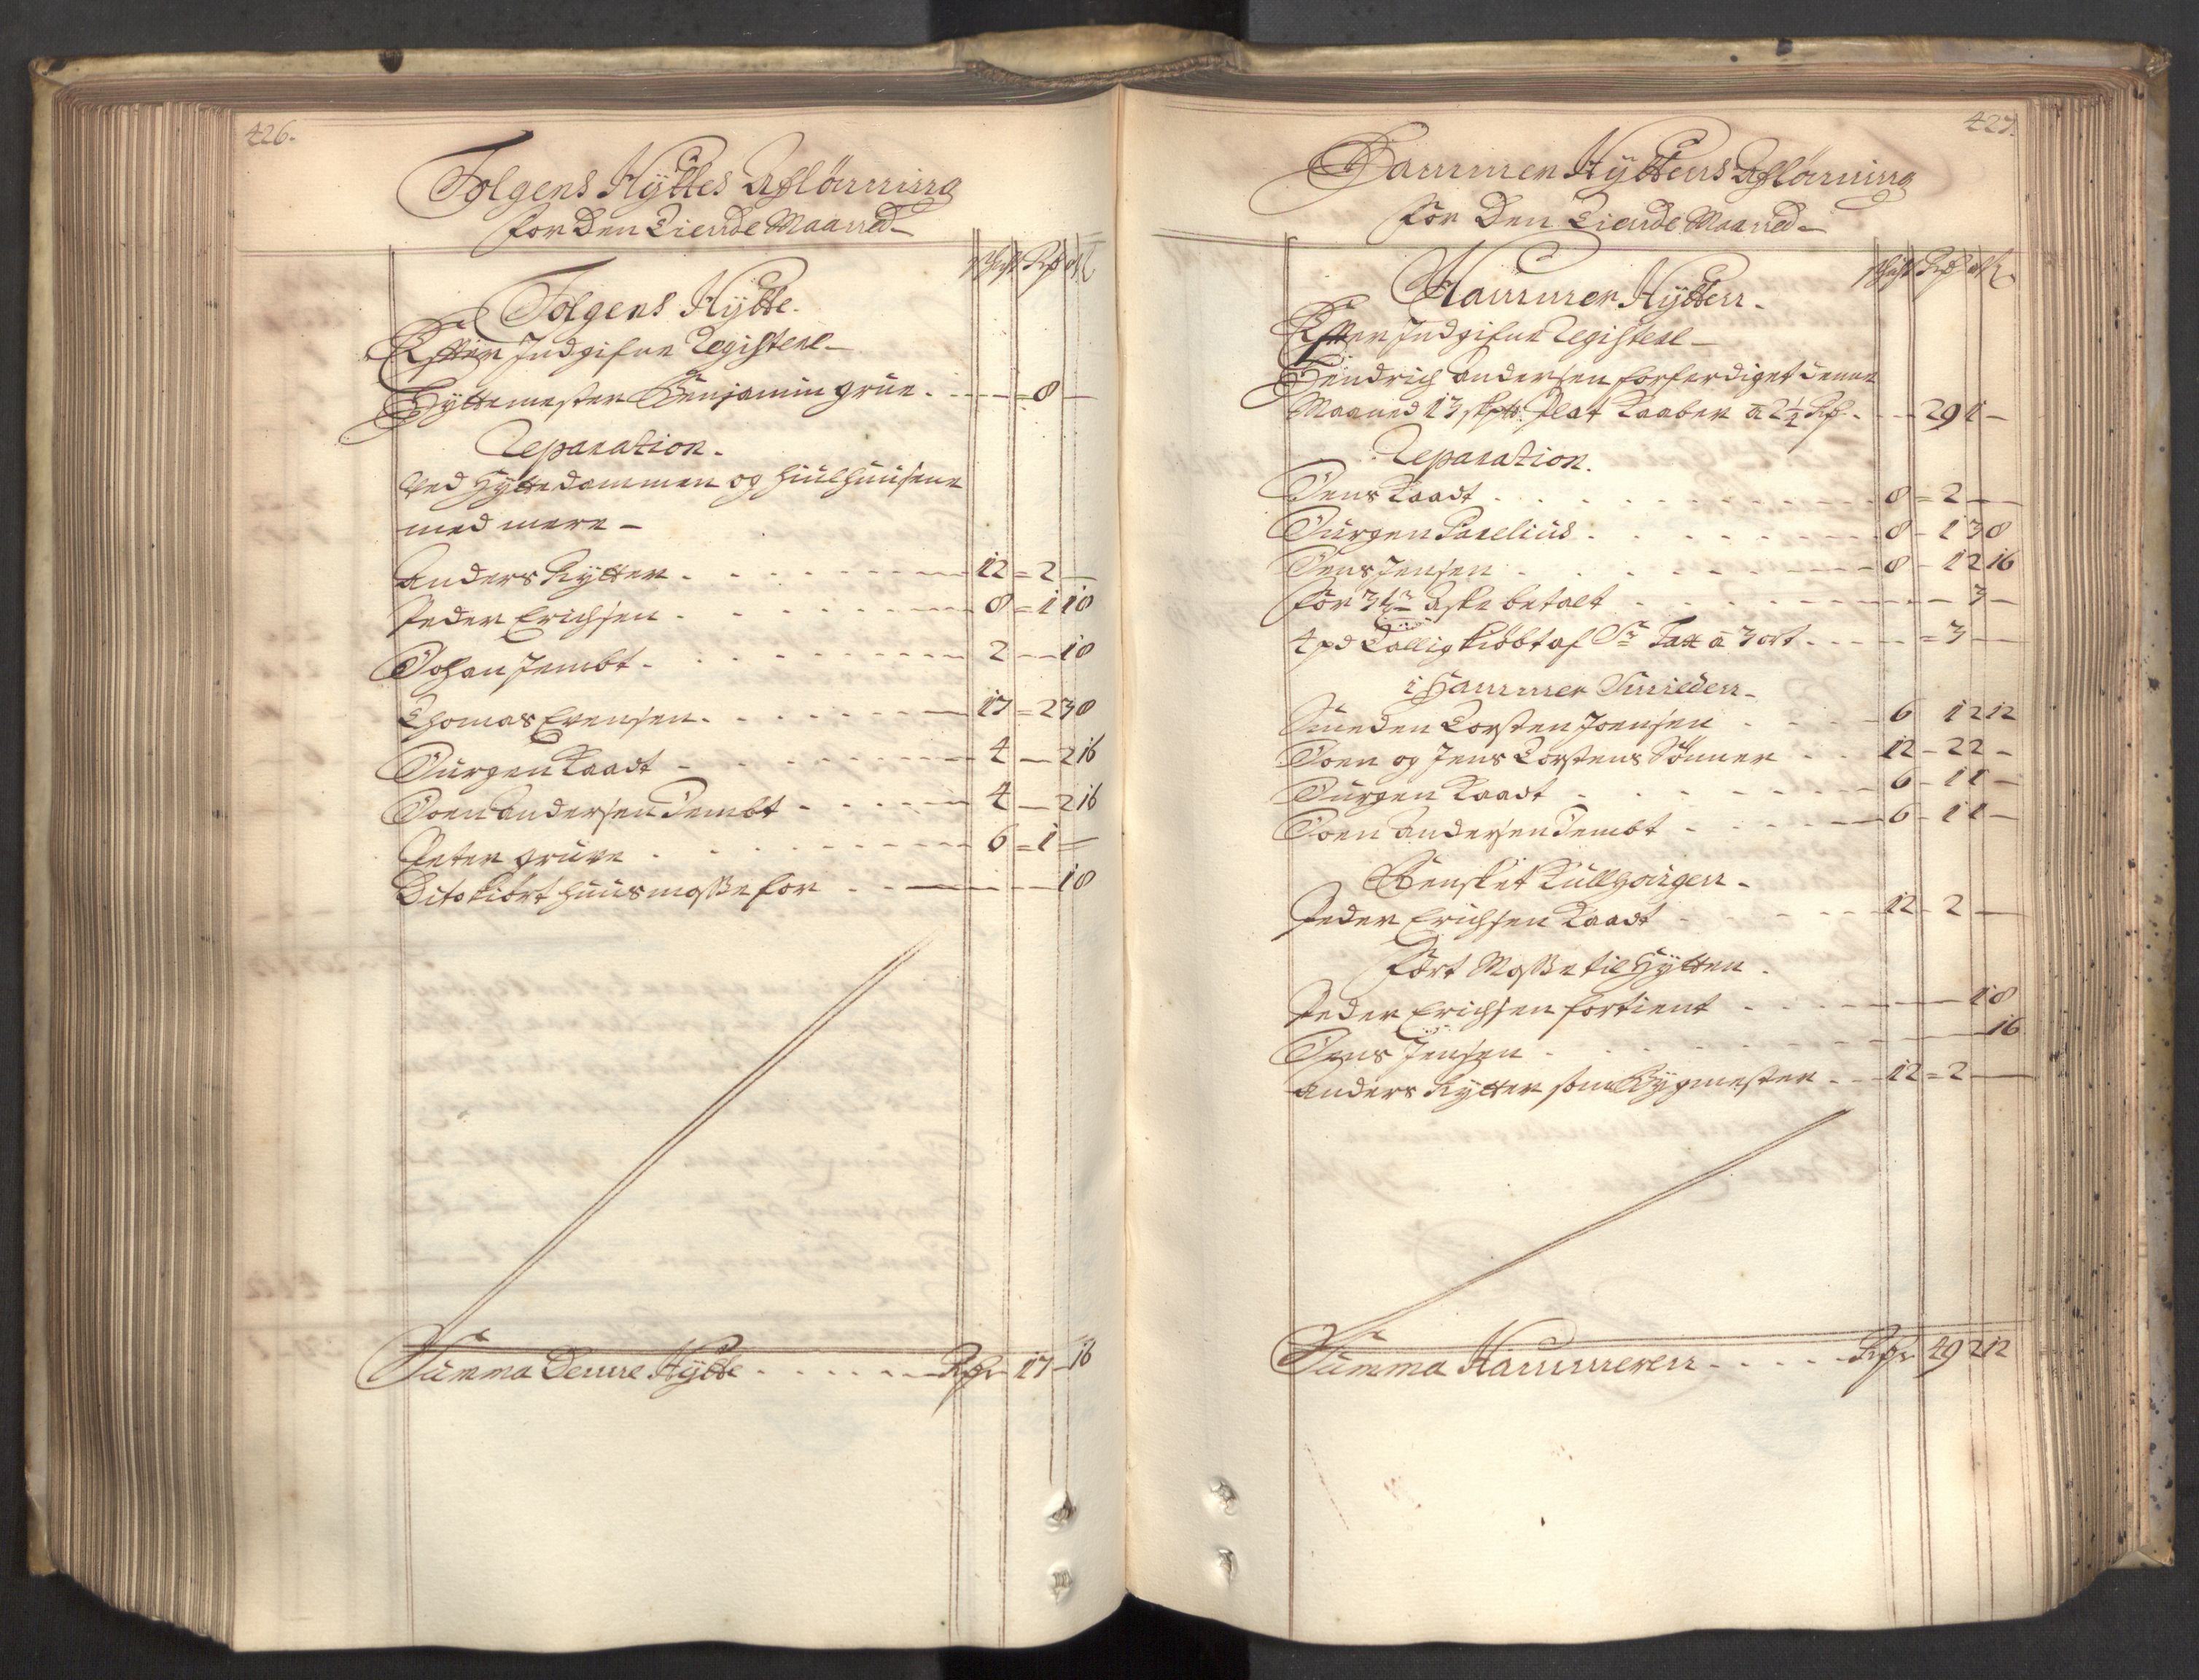 426.
Tolgens Hyttes Aflønning
for Den Tiende Maaned
Tolgens Hytte.
Efter Indgifne Registere
Hyttemester Benjamin Grüe. 8
Reparation.
Ved Hyttedammen og Hiulhuusene
med mere
Anders Rytter 12 2
Peder Erichsen 8 1 1 8
Johan Jembt 2 1 8
Thomas Evensen 17 2 3 8
Jürgen Kaadt 4 2 16
Joen Andersen Jembt 4 2 16
Peter Grüve 6 1
Dito kiørt huusmosse for 1 8
Summa Denne Hytte Rdr 17 16
427.
Hammer Hyttens Aflønning
for Den Tiende Maaned
Hammer Hytten.
Efter Indgifne Registere
Hendrich Andersen forferdiget denne
Maaned 13 skptt: Plat Kaaber a 2¼ Rd 29 1
Reparation.
Jens Kaadt 8 2
Jürgen Parelius 8 1 3 8
Jens Jensen 8 1 2 16
for 3 tr Aske betalt 3
4 pd Tallig kiøbt af Sr Tax a 3 ort 3
i Hammer Smieden
Smeden Torsten Joensen 6 1 2 12
Joen og Jens Torstens Sønner 12 2 2
Jürgen Kaadt 6 1 1
Joen Andersen Jembt 6 1 1
Rensket Kullhougen
Peder Erichsen Kaadt 12 2
Ført Mosse til Hytten.
Peder Erichsen fortient 1 8
Jens Jensen 16
Anders Rytter som Bygmester 12 2
Summa Hammeren Rdr 49 2 12